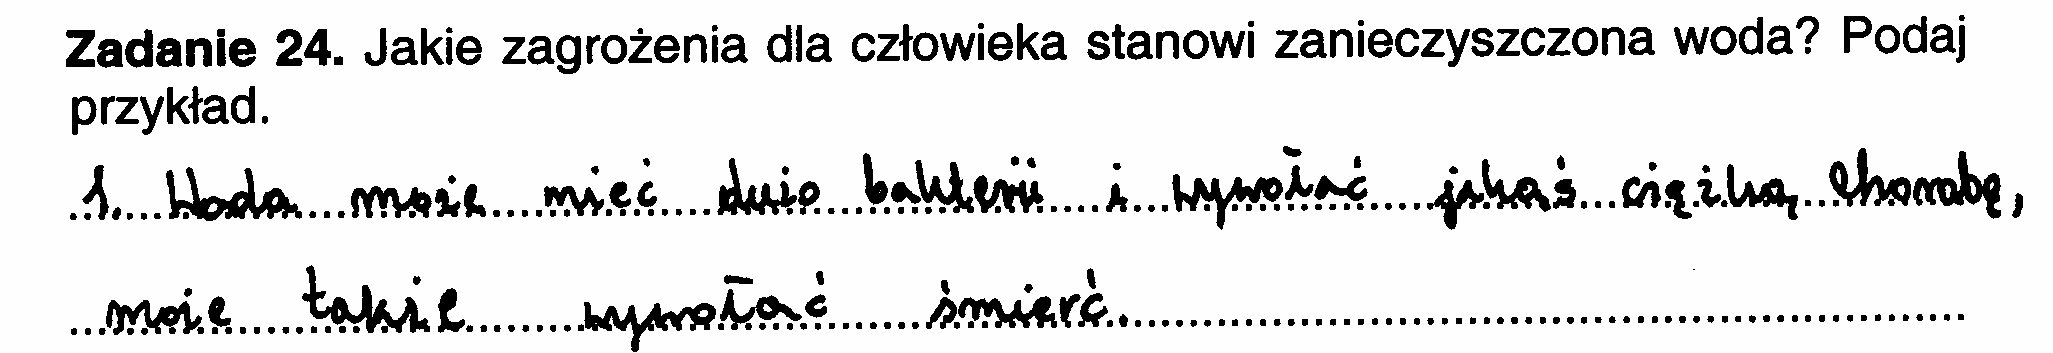 Zadanie 24. Jakie zagrożenia dla człowieka stanowi zanieczyszczona woda? Podaj
przykład.
1. Woda może mieć dużo bakterii i wywołać jakąś ciężką chorobę,
może także wywołać śmierć.